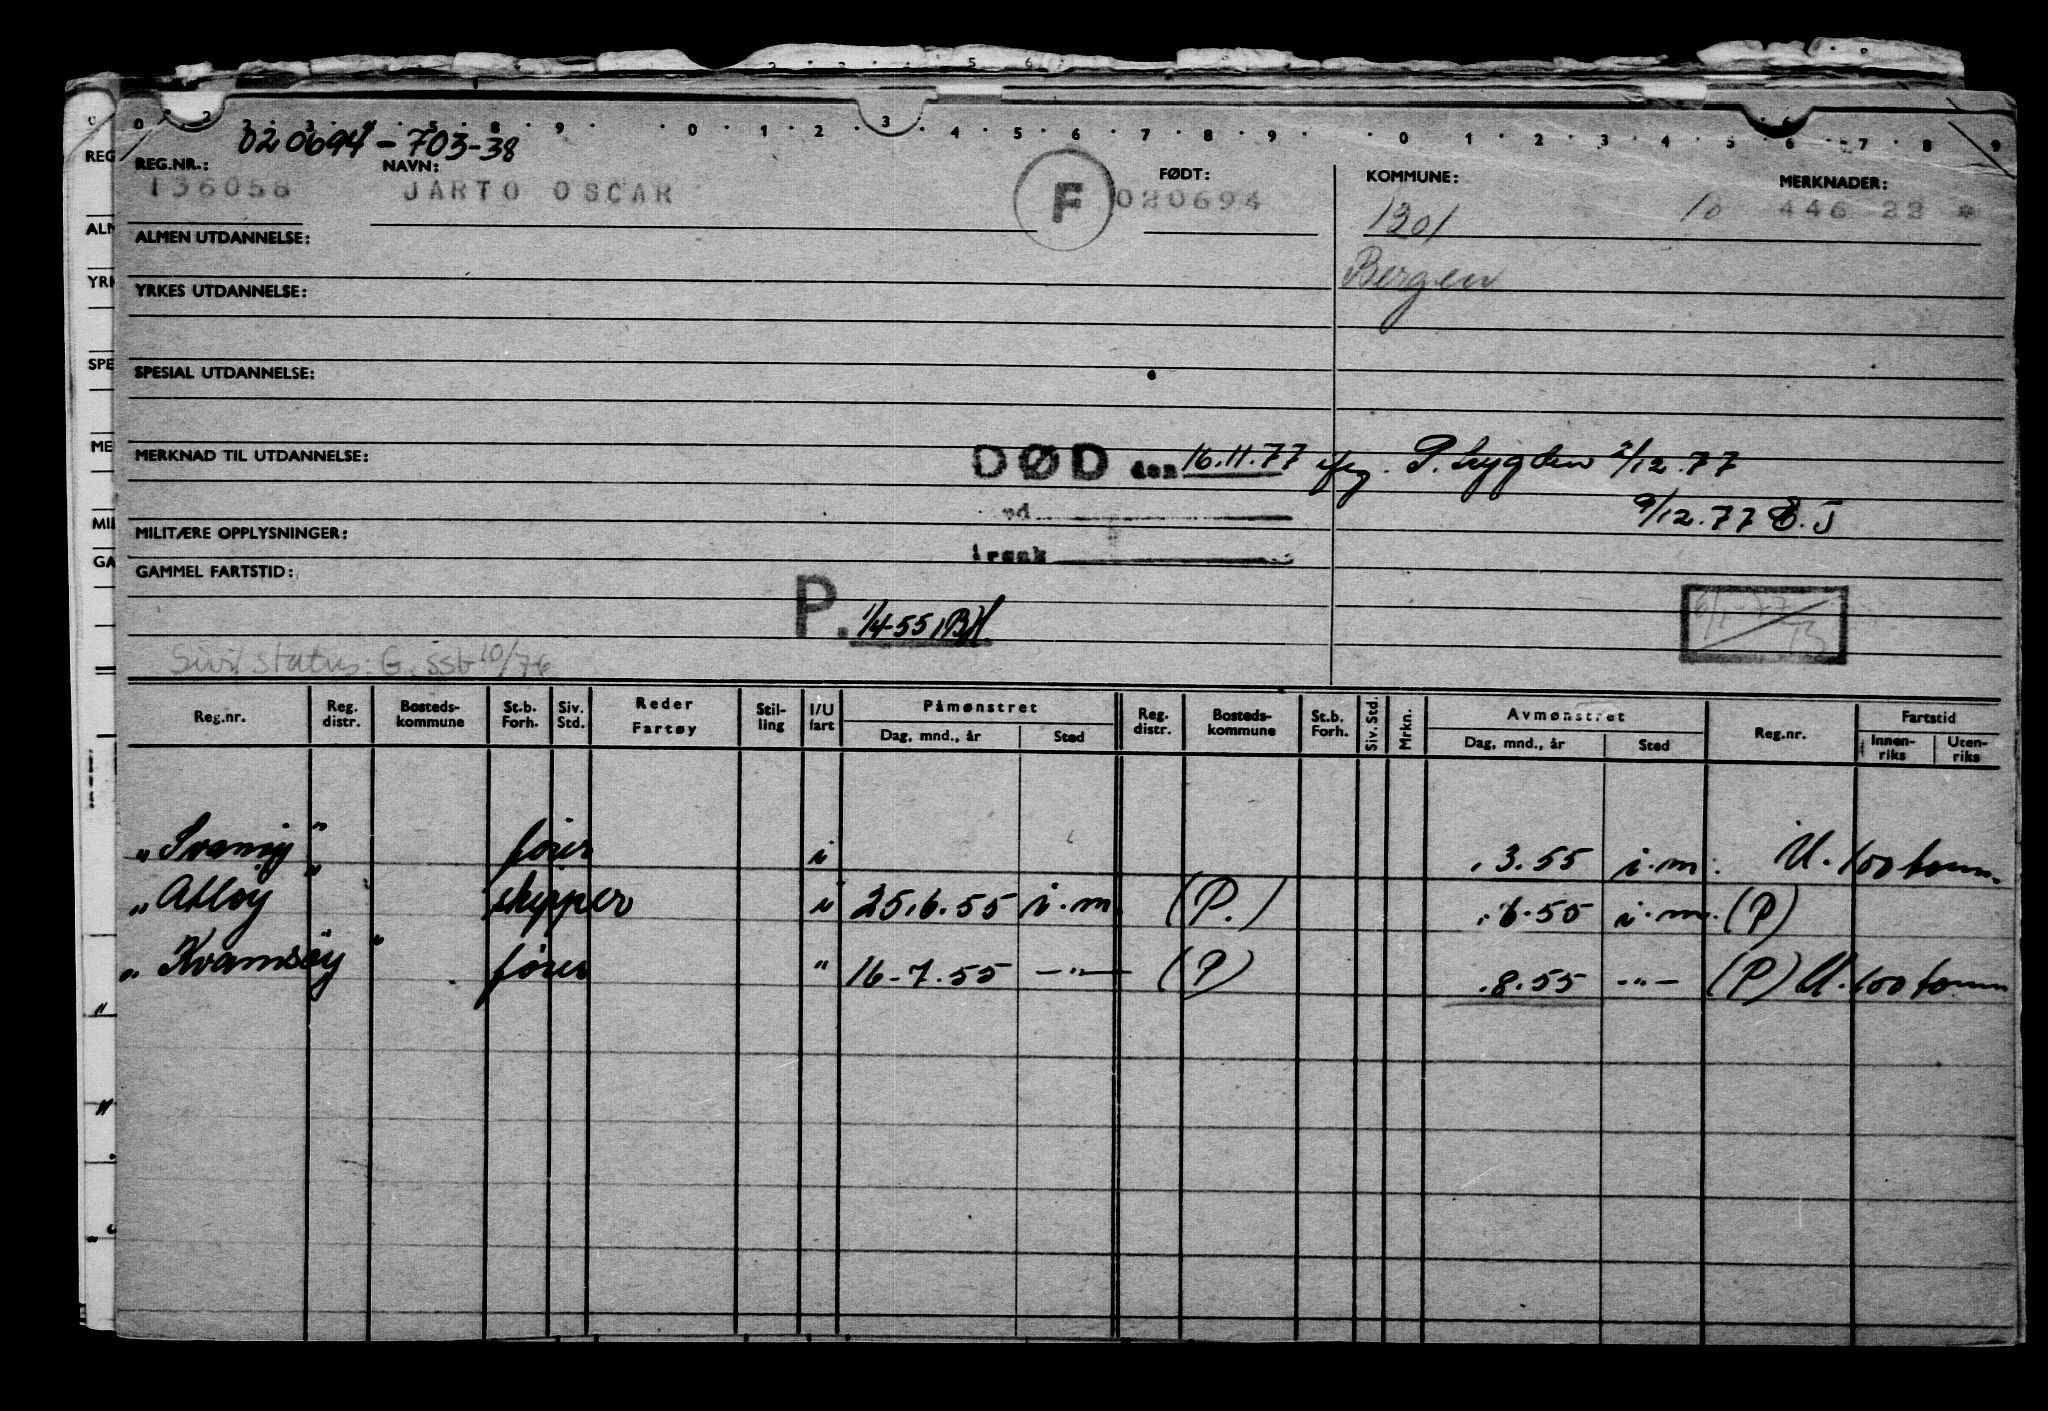 020694-703-38
REG.NR.: NAVN: FØDT: KOMMUNE: MERKNADER:
136058 JARTO OSCAR F 020694 1301 10 446 22 *
ALMEN UTDANNELSE:
Bergen
YRKES UTDANNELSE:
SPESIAL UTDANNELSE:
MERKNAD TIL UTDANNELSE: DØD den 16.11.77 P. 2/12.77
9/12.77 E.J
MILITÆRE OPPLYSNINGER:
GAMMEL FARTSTID:
P. 1/4-55
6/1-77
Sivil status: G. ssb 10/76
Reg.nr. Reg. distr. Bosteds-kommune St.b. Forh. Siv. Std. Reder Fartøy Stil-ling I/U fart Påmønstret Dag, mnd., år Sted Reg. distr. Bosteds-kommune St.b. Forh. Siv. Std. Mrkn. Avmønstret Dag, mnd., år Sted Reg.nr. Fartstid Innen-riks Uten-riks
"Svanøy" fører i .3.55 i.m. U. 100 tonn.
"Atløy" skipper i 25.6.55 i.m. (P.) .6.55 i.m. (P)
"Kvamsöy" fører " 16-7.55 —"— (P) .8.55 —"— (P) U. 100 tonn